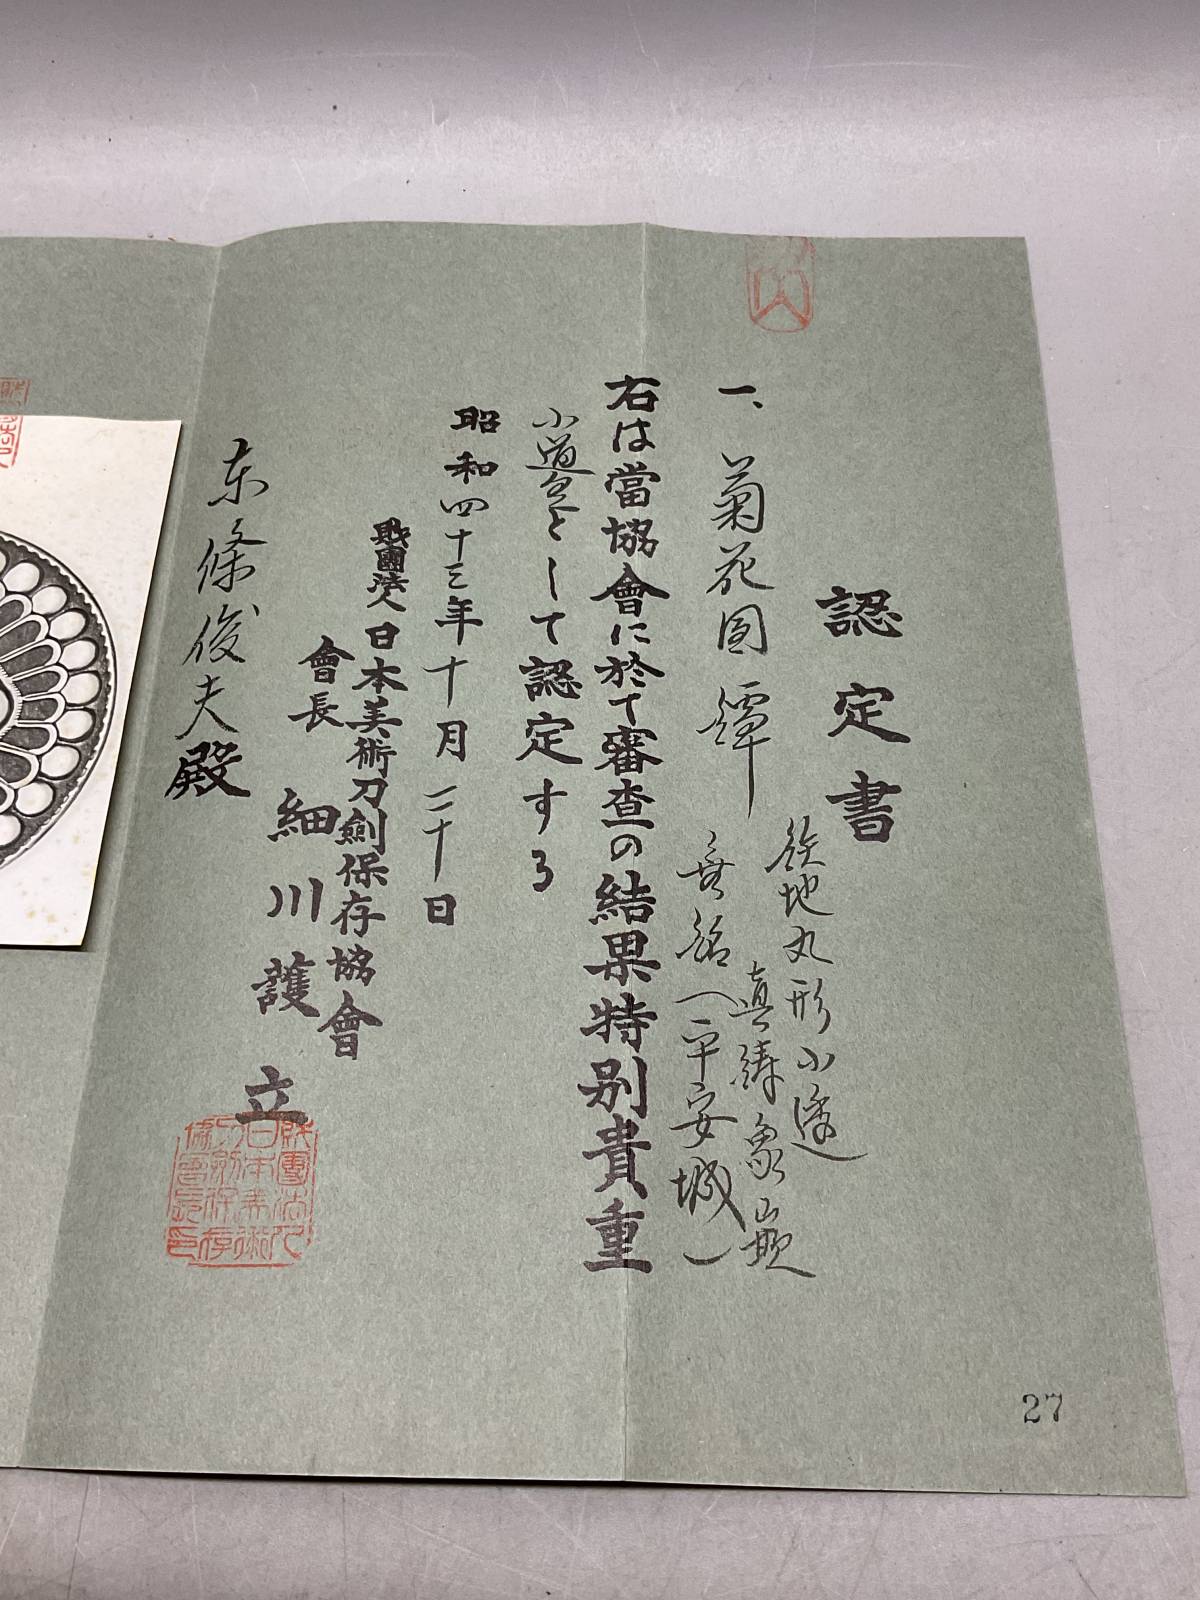 認定書
一、菊花図鐔
鉄地丸形小透
真鍮象嵌
無銘(平安城)
右は當協會に於て審査の結果特別貴重
小道具として認定する
昭和四十三年十月二十日
財團法人日本美術刀劍保存協會
會長 細川護立
東條俊夫殿
財團法人日本美術刀劍保存協會長印
27